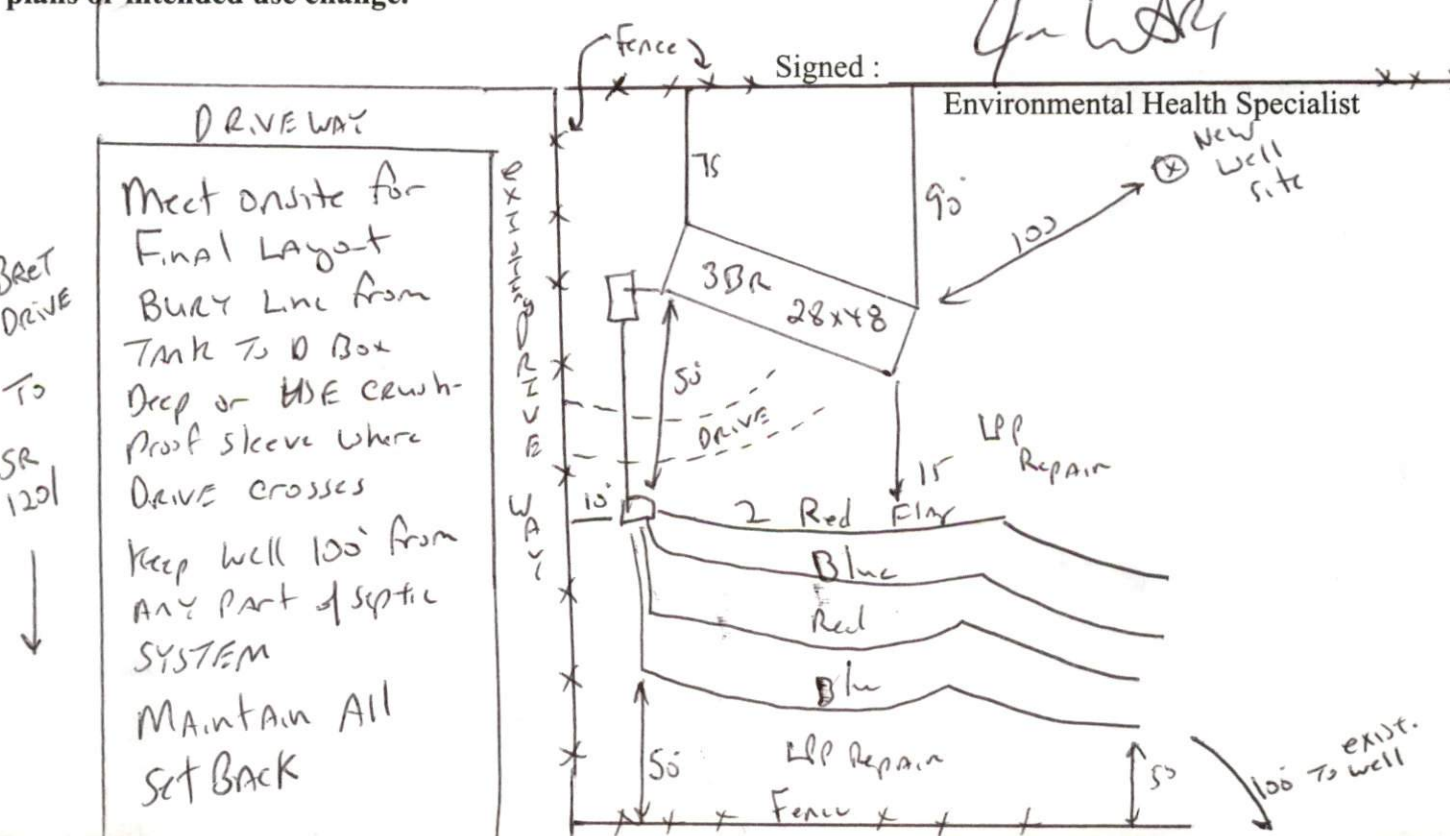 plans or intended use change.
Fence
Signed :
Environmental Health Specialist
DRIVEWAY
New
Well
Site
Meet onsite for
Final Layout
Bury Line from
Tank To D Box
Deep or USE Crush-
Proof Sleeve where
DRIVE crosses
Keep well 100' from
Any Part of Septic
SYSTEM
MAintAin All
Set BACK
BRET
DRIVE
To
SR
1201
EXISTING DRIVE WAY
75
90'
100
3BR
28x48
50'
DRIVE
15
LPP
Repair
10'
2 Red Flag
Blue
Red
Blu
50'
LPP Repair
50
exist.
100' To well
Fence